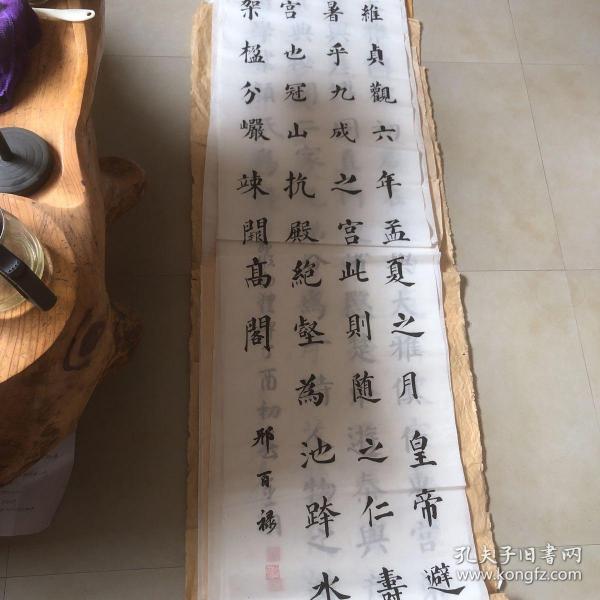 維貞觀六年孟夏之月皇帝避
暑乎九成之宫此則随之仁壽
宫也冠山抗殿絕壑為池跨水
架楹分巖竦闕高閣
邢百祿
孔夫子旧書网
www.kongfz.com